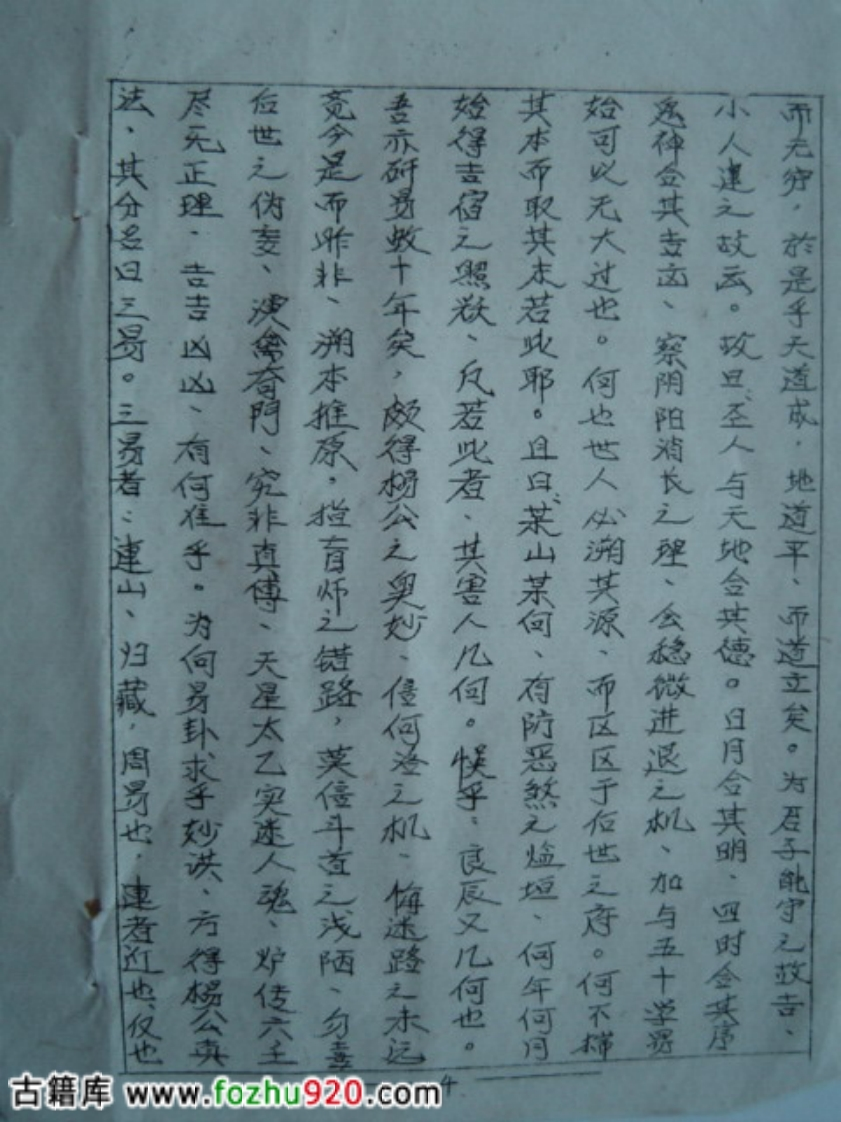 而无穷，於是乎天道成，地道平、而道立矣。为君子能守之故吉、
小人违之故凶。故曰、圣人与天地合其德。日月合其明、四时合其序
鬼神合其吉凶、察阴阳消长之理、会稳微进退之机、加与五十学易
始可以无大过也。何也世人必溯其源、而区区于后世之府。何不揣
其本而取其末若此耶。且曰、某山某向、有防恶煞之 垣、何年何月
始得吉宿之照 、凡若此者、其害人几何。悮乎、良辰又几何也。
吾亦研易数十年矣，颇得杨公之奥妙、 何 之机、悔迷路之未远
竟今是而昨非、溯本推原，指盲师之错路，莫信斗首之浅陋、勿喜
后世之伪妄、演禽奇門、究非真传、天星太乙实迷人魂、炉传六壬
尽无正理、吉吉凶凶、有何准乎。为向易卦求乎妙洪、方得杨公真
法、其分名曰三易。三易者：連山、归藏，周易也，連者近也、仅也
4
古籍库 www.fozhu920.com